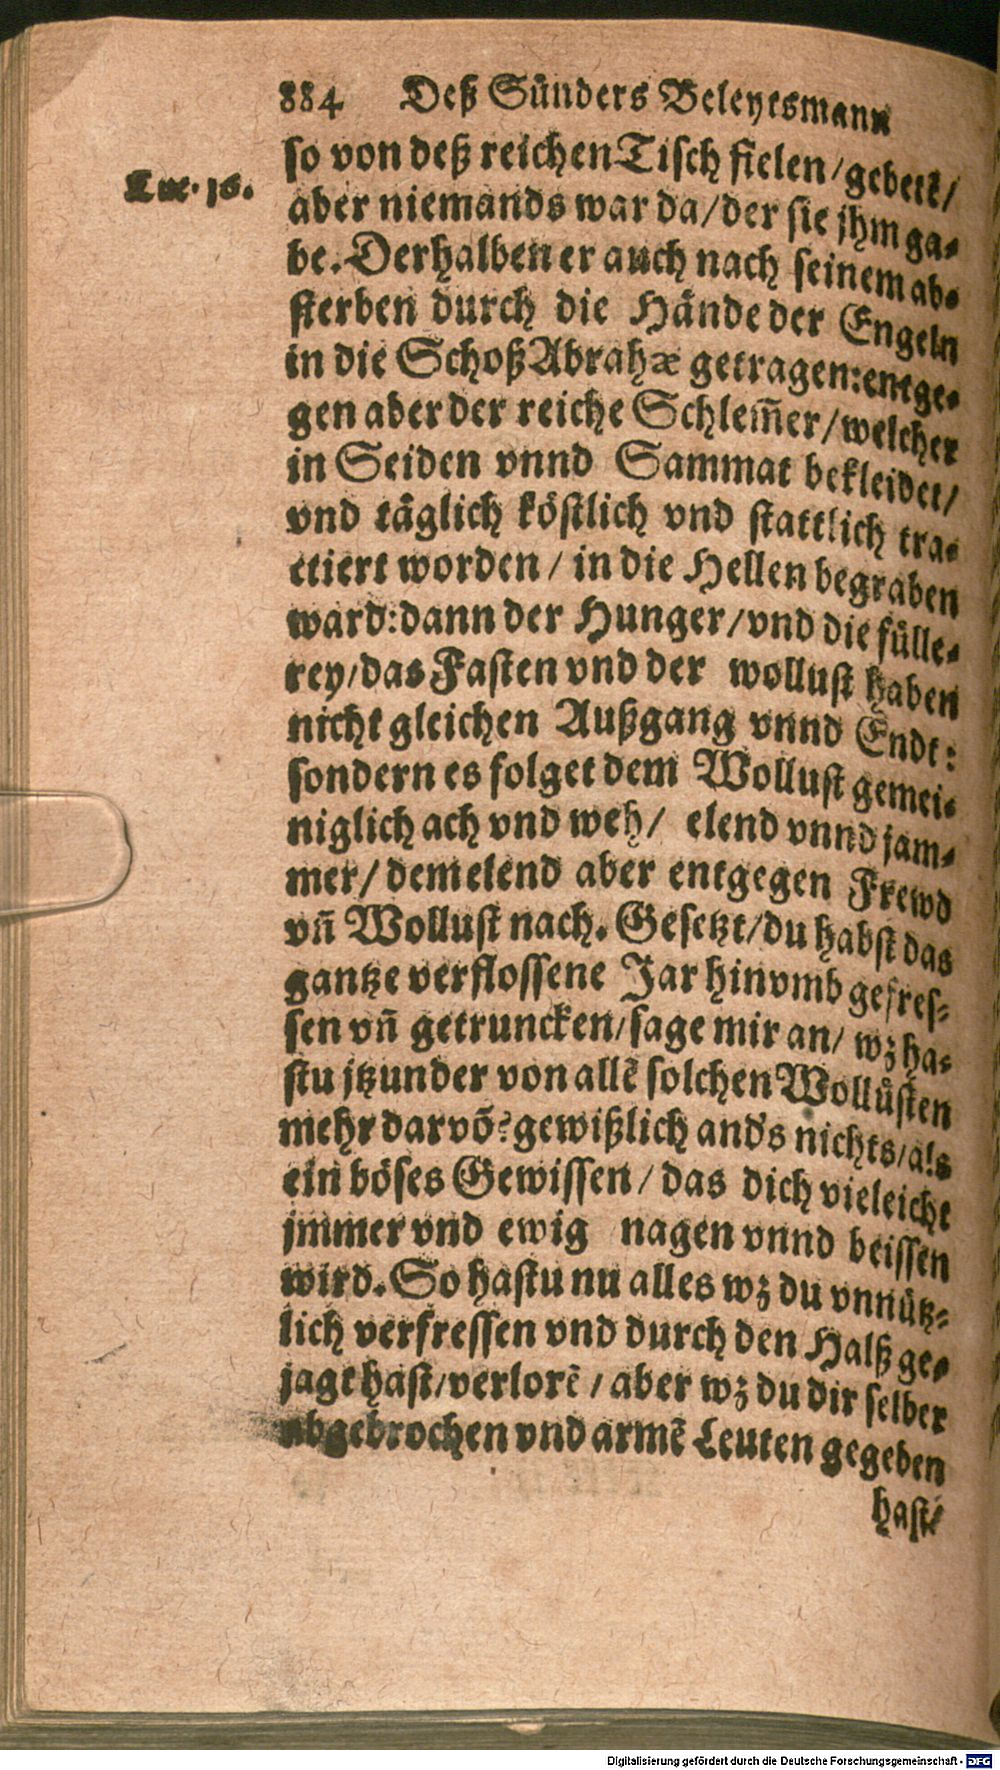 884 Deß Sünders Beleytesmann
Luc. 16.
so von deß reichen Tisch fielen / gebett /
aber niemands war da / der sie jhm ga-
be. Derhalben er auch nach seinem ab-
sterben durch die Hände der Engeln
in die Schoß Abrahæ getragen: entge-
gen aber der reiche Schlem̃er / welcher
in Seiden vnnd Sammat bekleidet /
vnd täglich köstlich vnd stattlich tra-
ctiert worden / in die Hellen begraben
ward: dann der Hunger / vnd die fülle-
rey / das Fasten vnd der wollust haben
nicht gleichen Außgang vnnd Endt:
sondern es folget dem Wollust gemei-
niglich ach vnd weh / elend vnnd jam-
mer / dem elend aber entgegen Frewd
vñ Wollust nach. Gesetzt / du habst das
gantze verflossene Jar hinvmb gefres-
sen vñ getruncken / sage mir an / wz ha-
stu jtzunder von allē solchen Wollüsten
mehr darvō? gewißlich and's nichts / als
ein böses Gewissen / das dich vieleicht
jmmer vnd ewig nagen vnnd beissen
wird. So hastu nu alles wz du vnnütz-
lich verfressen vnd durch den Halß ge-
jagt hast / verlorē / aber wz du dir selber
abgebrochen vnd armē Leuten gegeben
hast /
Digitalisierung gefördert durch die Deutsche Forschungsgemeinschaft - DFG